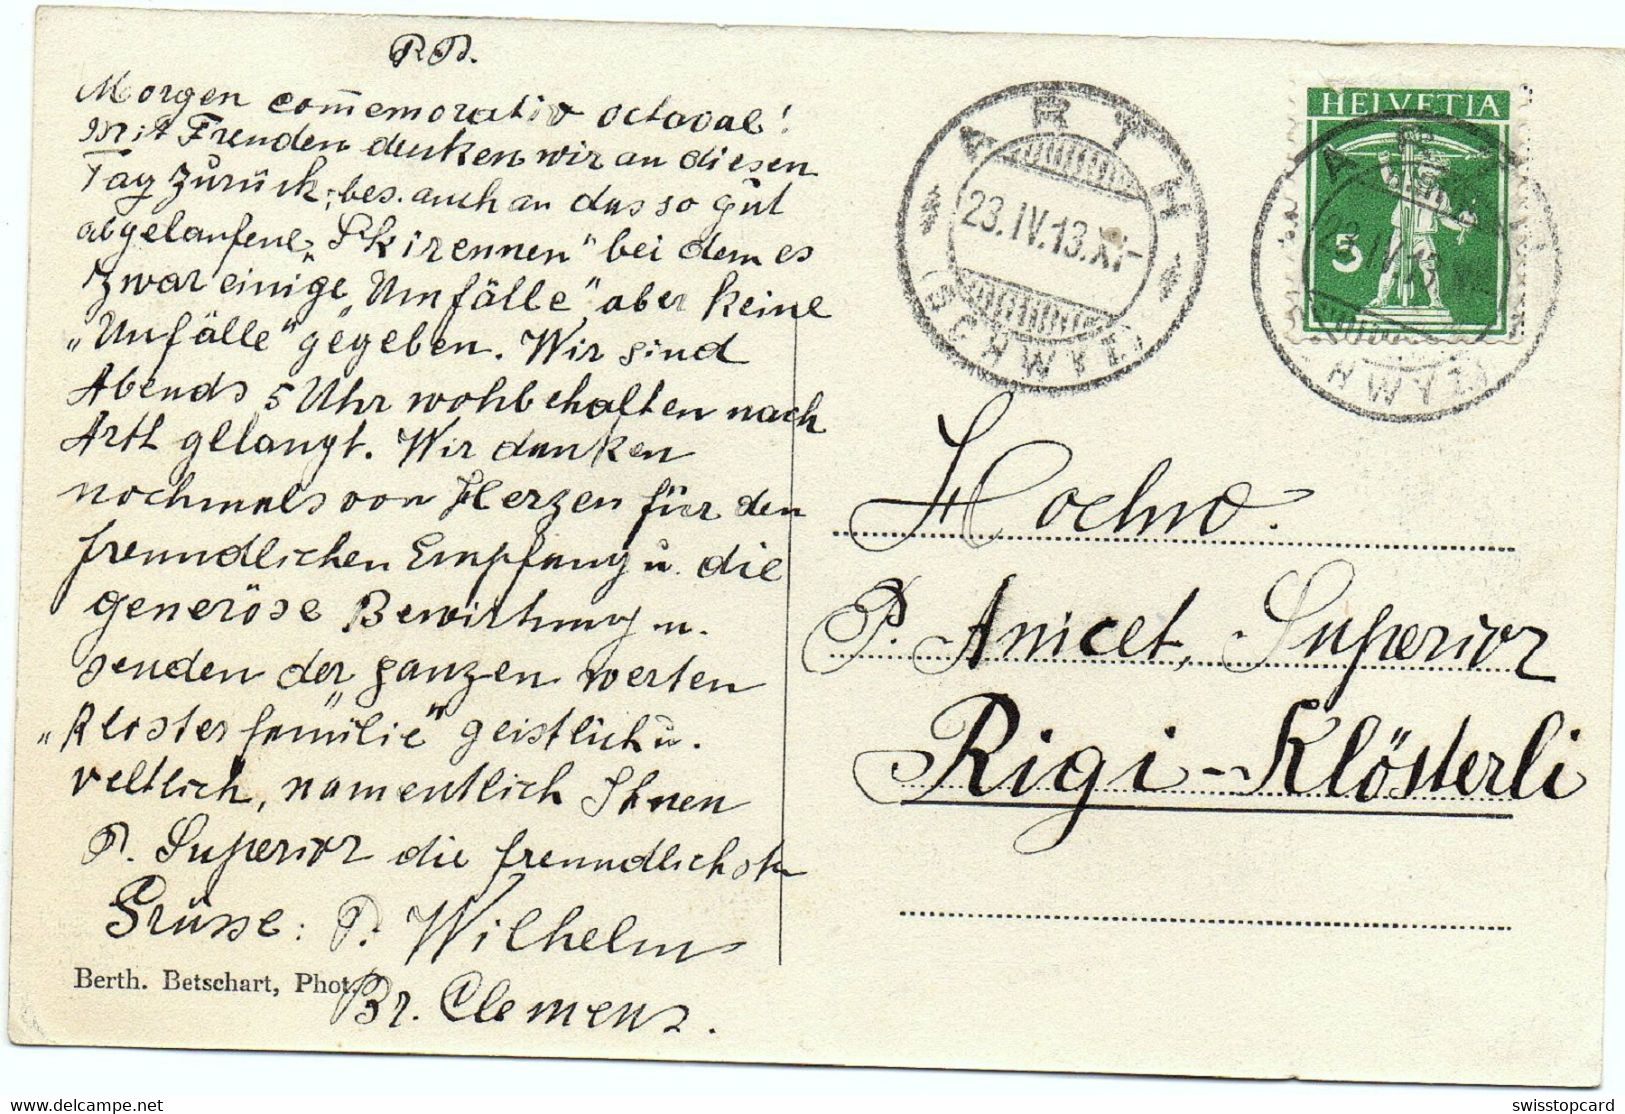 P.P.
Morgen com̄emorativ octaval!
Mit Freuden denken wir an diesen
Tag zurück; bes. auch an das so gut
abgelaufene „Skirennen" bei dem es
zwar einige „Umfälle", aber keine
„Unfälle" gegeben. Wir sind
Abends 5 Uhr wohlbehalten nach
Arth gelangt. Wir danken
nochmals von Herzen für den
freundlichen Empfang u. die
generöse Bewirthung u.
senden der ganzen werten
„Klosterfamilie" geistlich u.
weltlich, namentlich Ihnen
P. Superior die freundlichsten
Grüsse: P. Wilhelm
Berth. Betschart, Phot.
Br. Clemenz.
ARTH
23.IV.13.XI-
(SCHWYZ)
HELVETIA
5
ARTH
23.IV.13.XI-
(SCHWYZ)
Hochw.
P. Anicet, Superior
Rigi-Klösterli
swisstopcard
delcampe.net